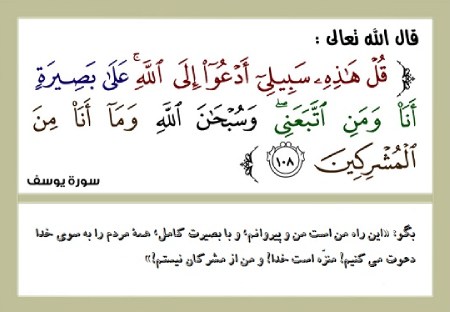 قال الله تعالى :
﴿ قُلْ هَـٰذِهِۦ سَبِيلِىٓ أَدْعُوٓا۟ إِلَى ٱللَّهِ ۚ عَلَىٰ بَصِيرَةٍ
أَنَا۠ وَمَنِ ٱتَّبَعَنِى ۖ وَسُبْحَـٰنَ ٱللَّهِ وَمَآ أَنَا۠ مِنَ
ٱلْمُشْرِكِينَ ١٠٨ ﴾
سورة يوسف
بگو: «این راه من است من و پیروانم؛ و با بصیرت کامل؛ همهٔ مردم را به سوی خدا
دعوت می کنیم! منزّه است خدا! و من از مشرکان نیستم!»